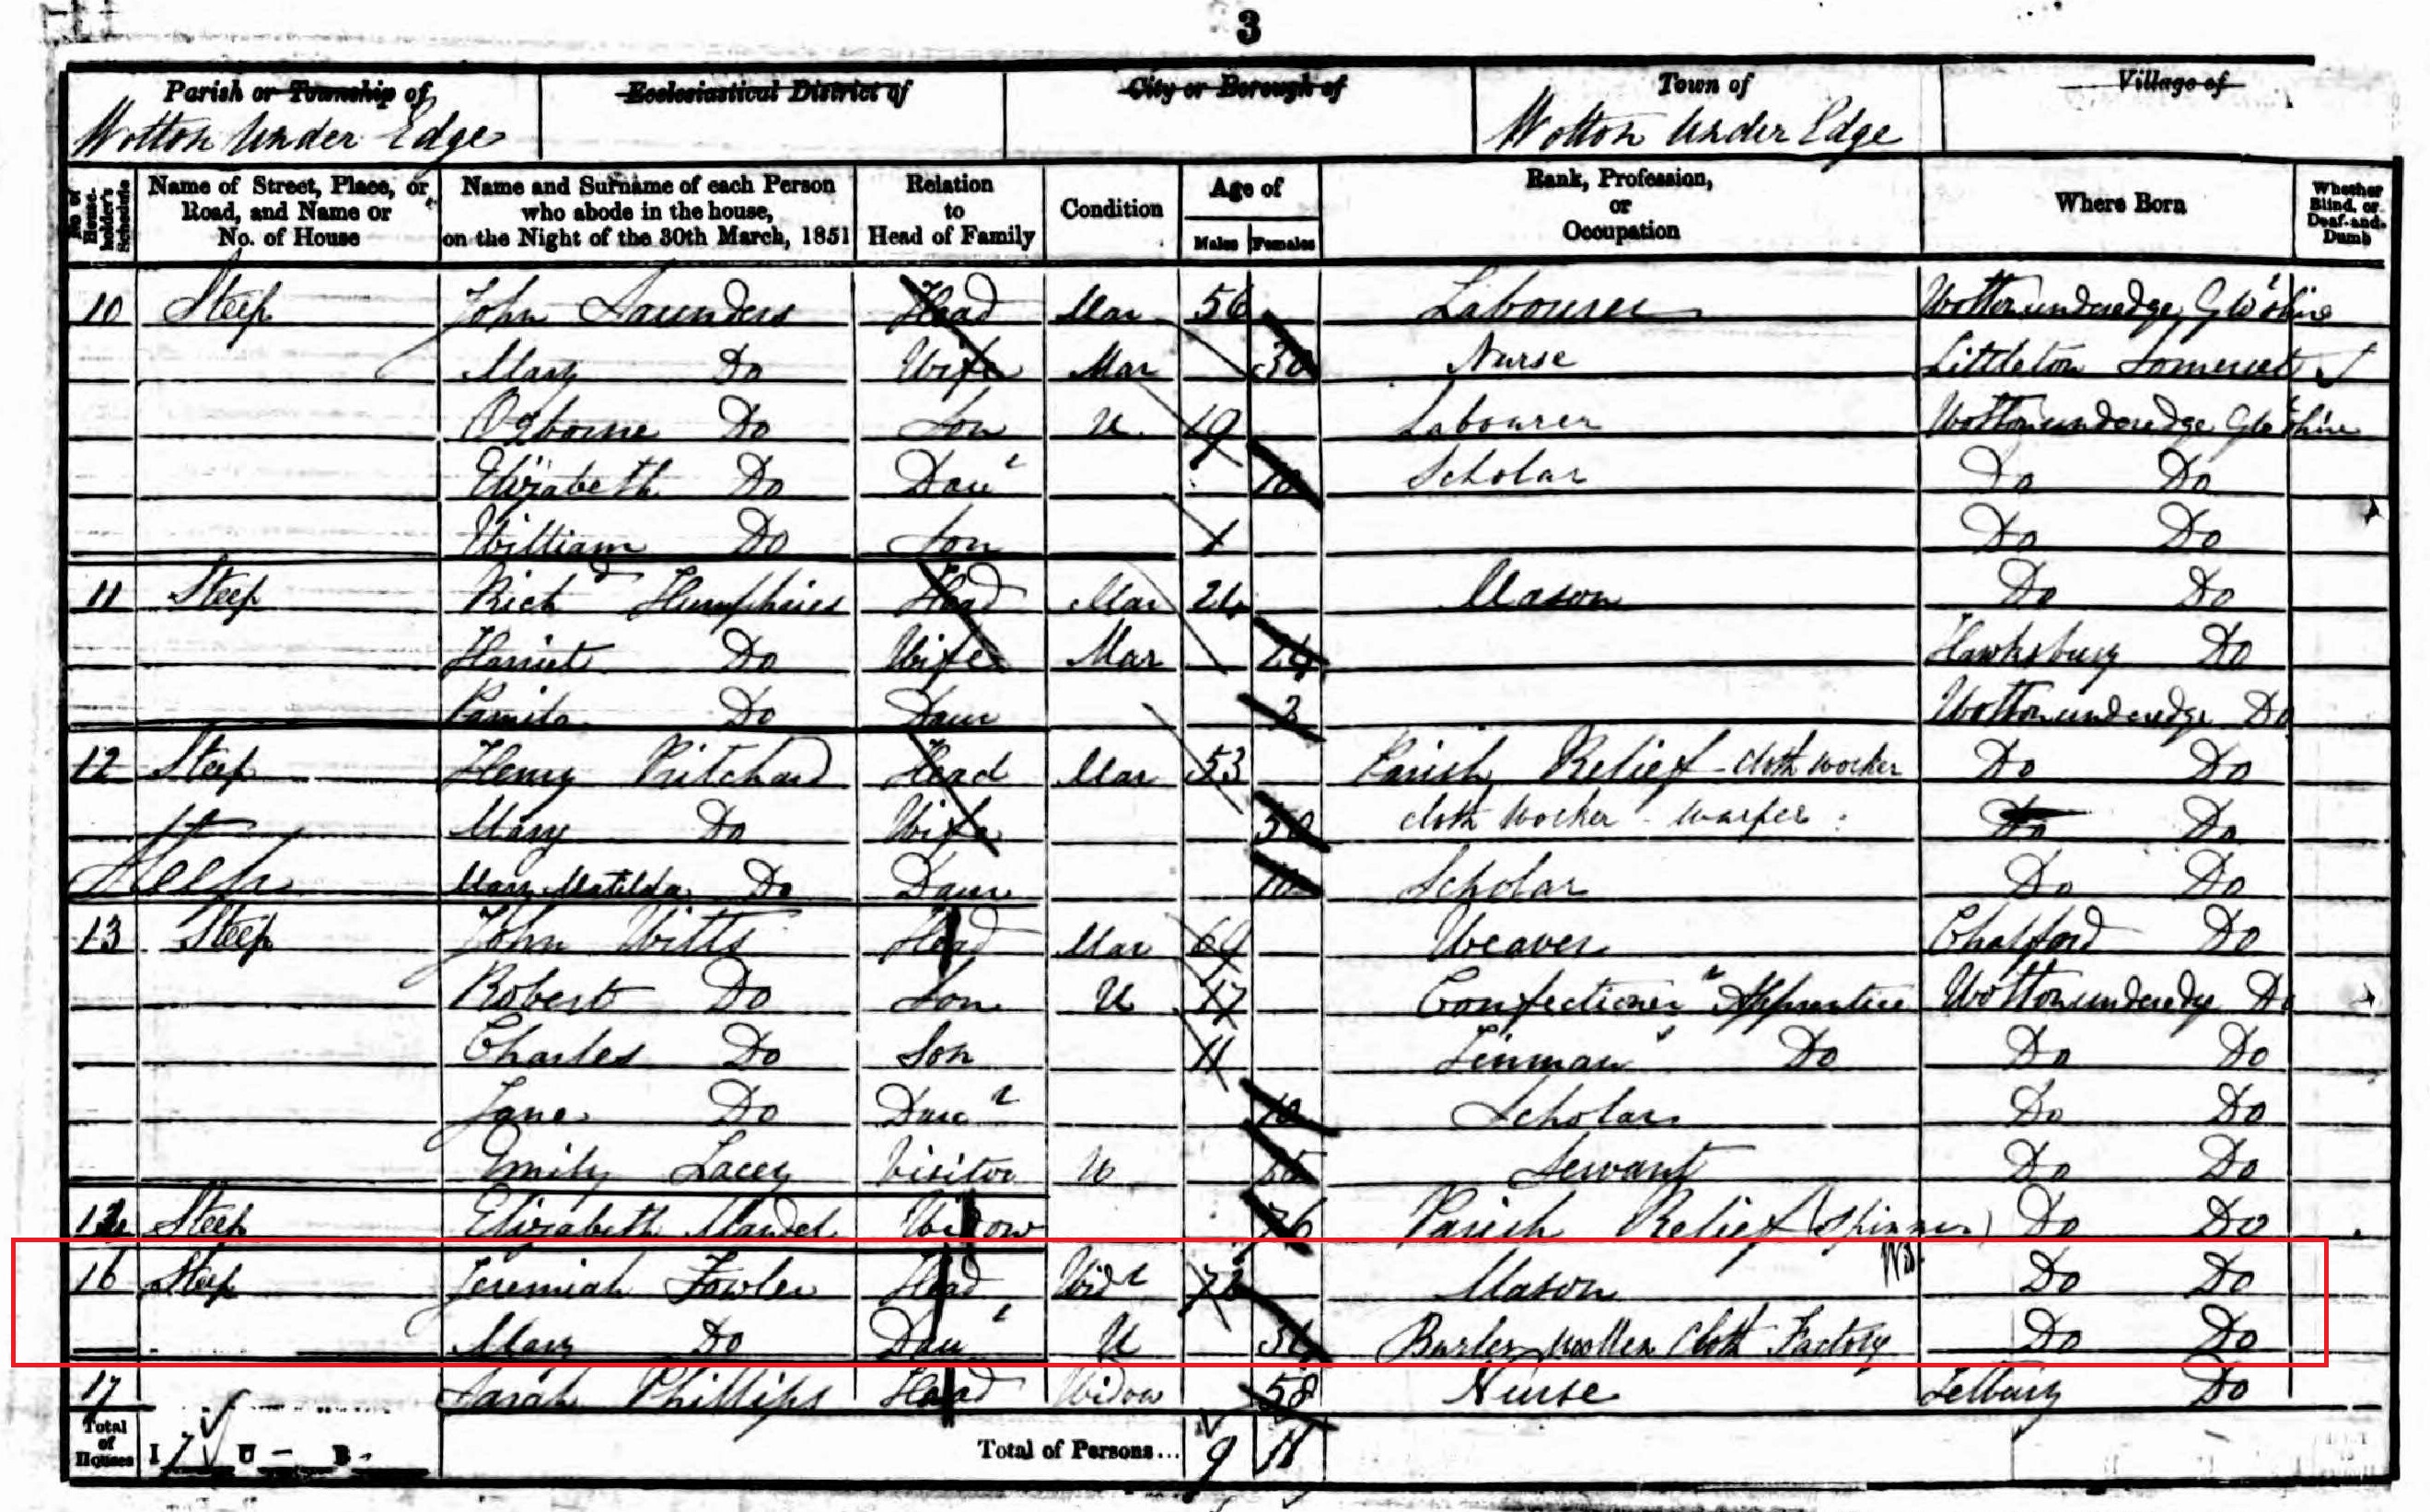 3
Parish or Township of Ecclesiastical District of City or Borough of Town of Village of
Wotton Under Edge Wotton Under Edge
No. of House-holder's Schedule Name of Street, Place, or Road, and Name or No. of House Name and Surname of each Person who abode in the house, on the Night of the 30th March, 1851 Relation to Head of Family Condition Age of Males Females Rank, Profession, or Occupation Where Born Whether Blind, or Deaf-and-Dumb
10 Steep John Saunders Head Mar 56 Labourer Wottonunderedge Glo'shire
Mary Do Wife Mar 30 Nurse Littleton Somerset
Osborne Do Son U 19 Labourer Wottonunderedge Glo'shire
Elizabeth Do Daur 10 Scholar Do Do
William Do Son 1 Do Do
11 Steep Richd Humphries Head Mar 24 Mason Do Do
Harriet Do Wife Mar 24 Hawksbury Do
Do Daur 3 Wottonunderedge Do
12 Steep Henry Pritchard Head Mar 53 Parish Relief - Cloth Worker Do Do
Mary Do Wife 50 Cloth Worker - Warper Do Do
Steep Mary Matilda Do Daur 10 Scholar Do Do
13 Steep John Witts Head Mar 69 Weaver Chalford Do
Robert Do Son U 17 Confectioner Apprentice Wottonunderedge Do
Charles Do Son 11 Tinman's Do Do Do
Jane Do Daur 10 Scholar Do Do
Emily Lacey Visitor U Servant Do Do
Steep Elizabeth Mandel Widow 76 Parish Relief (Spinner) Do Do
16 Steep Jeremiah Fowler Head Widr 72 Mason Do Do
Mary Do Daur U 34 Burler Woollen Cloth Factory Do Do
17 Sarah Phillips Head Widow 58 Nurse Tetbury Do
Total of Houses I 7 U - B - Total of Persons... 9 11